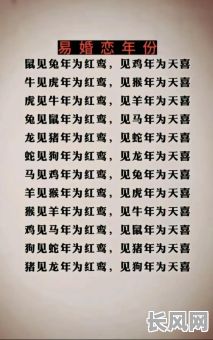 易婚恋年份
鼠见兔年为红鸾，见鸡年为天喜
牛见虎年为红鸾，见猴年为天喜
虎见牛年为红鸾，见羊年为天喜
兔见鼠年为红鸾，见马年为天喜
龙见猪年为红鸾，见蛇年为天喜
蛇见狗年为红鸾，见龙年为天喜
马见鸡年为红鸾，见兔年为天喜
羊见猴年为红鸾，见虎年为天喜
猴见羊年为红鸾，见牛年为天喜
鸡见马年为红鸾，见鼠年为天喜
狗见蛇年为红鸾，见猪年为天喜
猪见龙年为红鸾，见狗年为天喜
长风网